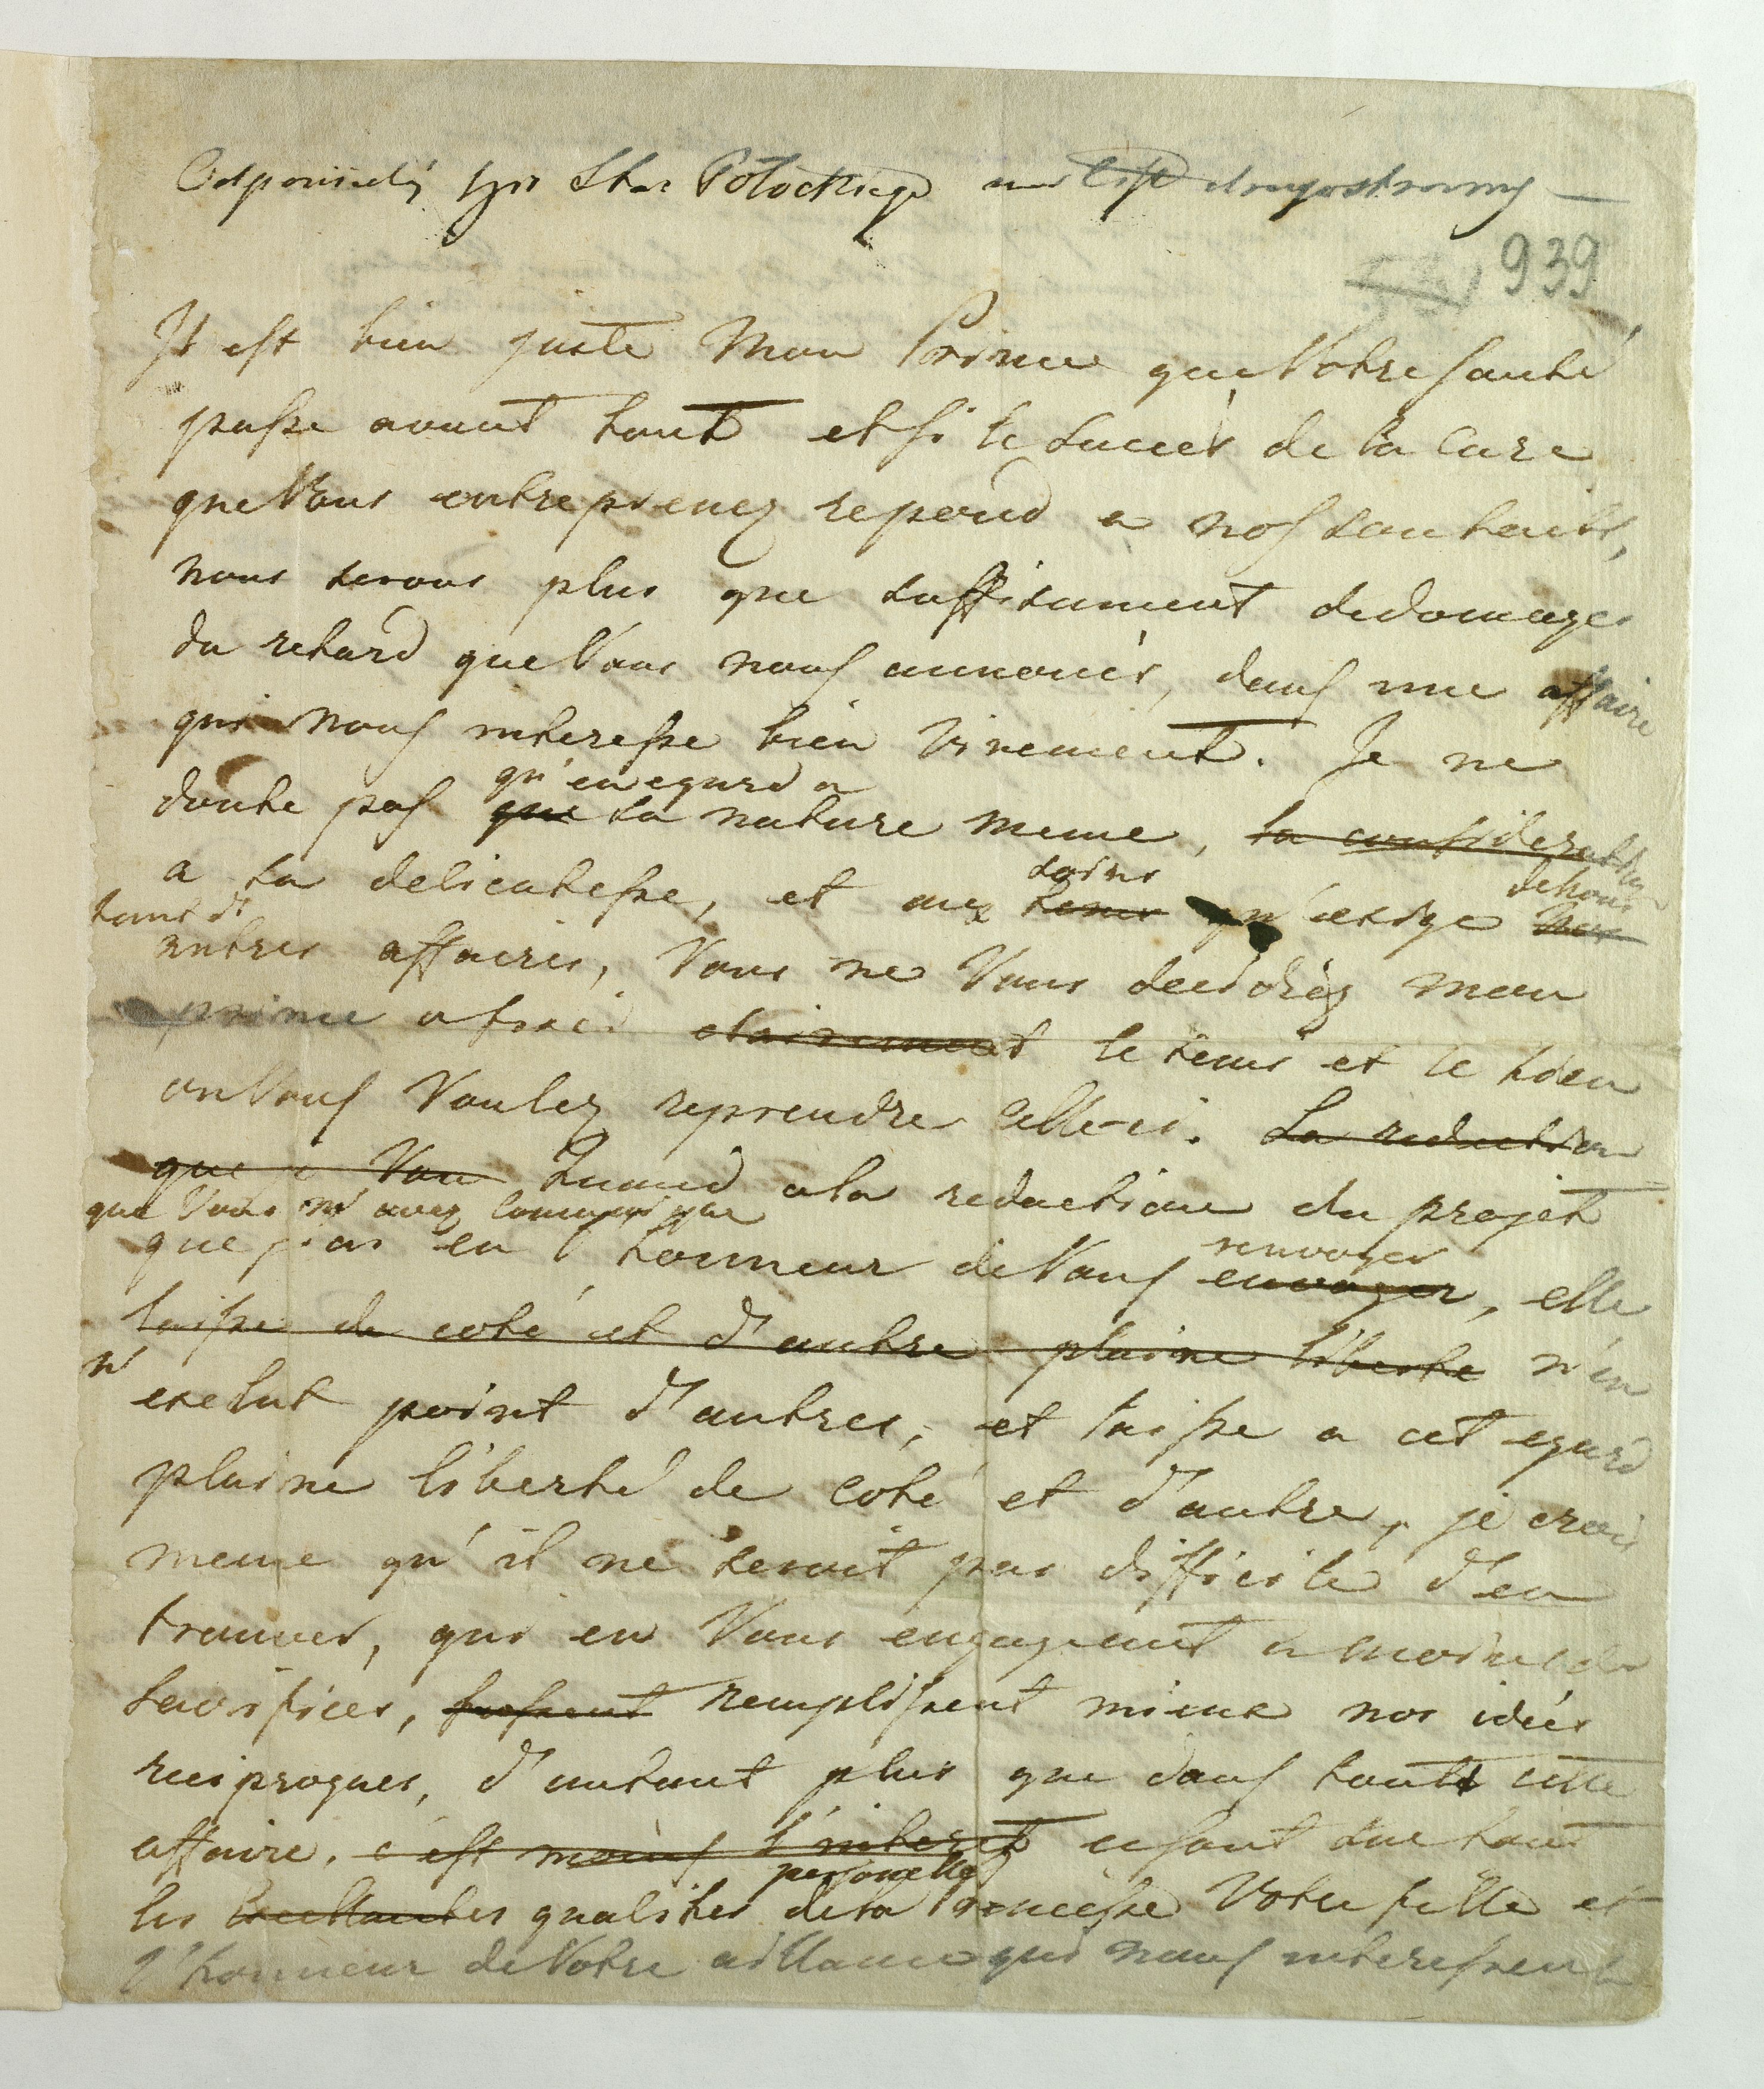 Odpowiedź Hra Sta: Potockiego na list drugostronny —
939
Il est bien juste Mon Prince que Votre santé
passe avant tout et si le succès de la cure
que Vous entreprenez repond a nos souhaits,
nous serons plus que suffisament dedomages
du retard que Vous nous annoncés, dans une affaire
qui nous interesse bien vivement. Je ne
qu'en egard a
doute pas que sa nature meme, la consideration
soins dehors
a sa delicatesse, et aux qu'exige
tant d'
autres affaires, Vous ne Vous decidiéz mon
prince a fixer clairement le tems et le lieu
ou Vous Voulez reprendre celle-ci. La redaction
que je Vou Quand a la redaction du projet
que Vous m'avez communiqué
que j'ai eu l'honneur de Vous envoyer, elle
renvoyer
laisse de coté et d'autre pleine liberté n'en
n'
exclut point d'autres, et laisse a cet egard
pleine liberté de coté et d'autre, je crois
meme qu'il ne seroit pas difficile d'en
trouver, qui en Vous engageant a moins de
sacrifices, remplissent mieux nos idées
reciproques, d'autant plus que dans toute cette
affaire, c'est moins l'interet ce sont sur tout
personelles
les excellantes qualites de la Princesse Votre fille et
l'honneur de Votre aillance qui nous interessent